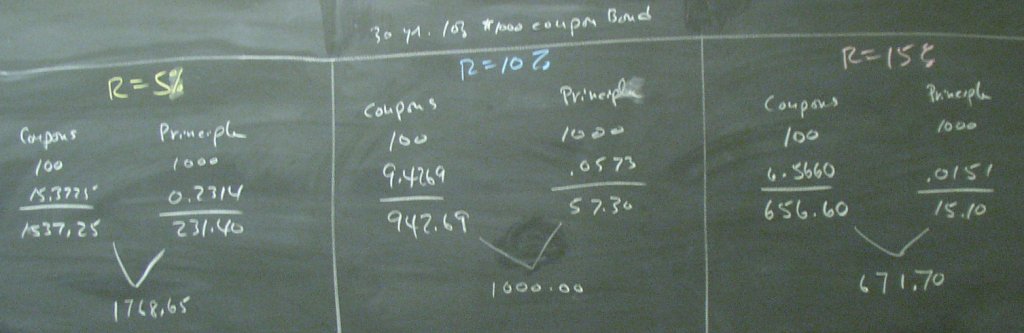 30 yr. 10% $1000 coupon Bond
R=5%
Coupons Principle
100 1000
15.3725 0.2314
1537.25 231.40
1768.65
R=10%
Coupons Principle
100 1000
9.4269 .0573
942.69 57.30
1000.00
R=15%
Coupons Principle
100 1000
6.5660 .0151
656.60 15.10
671.70